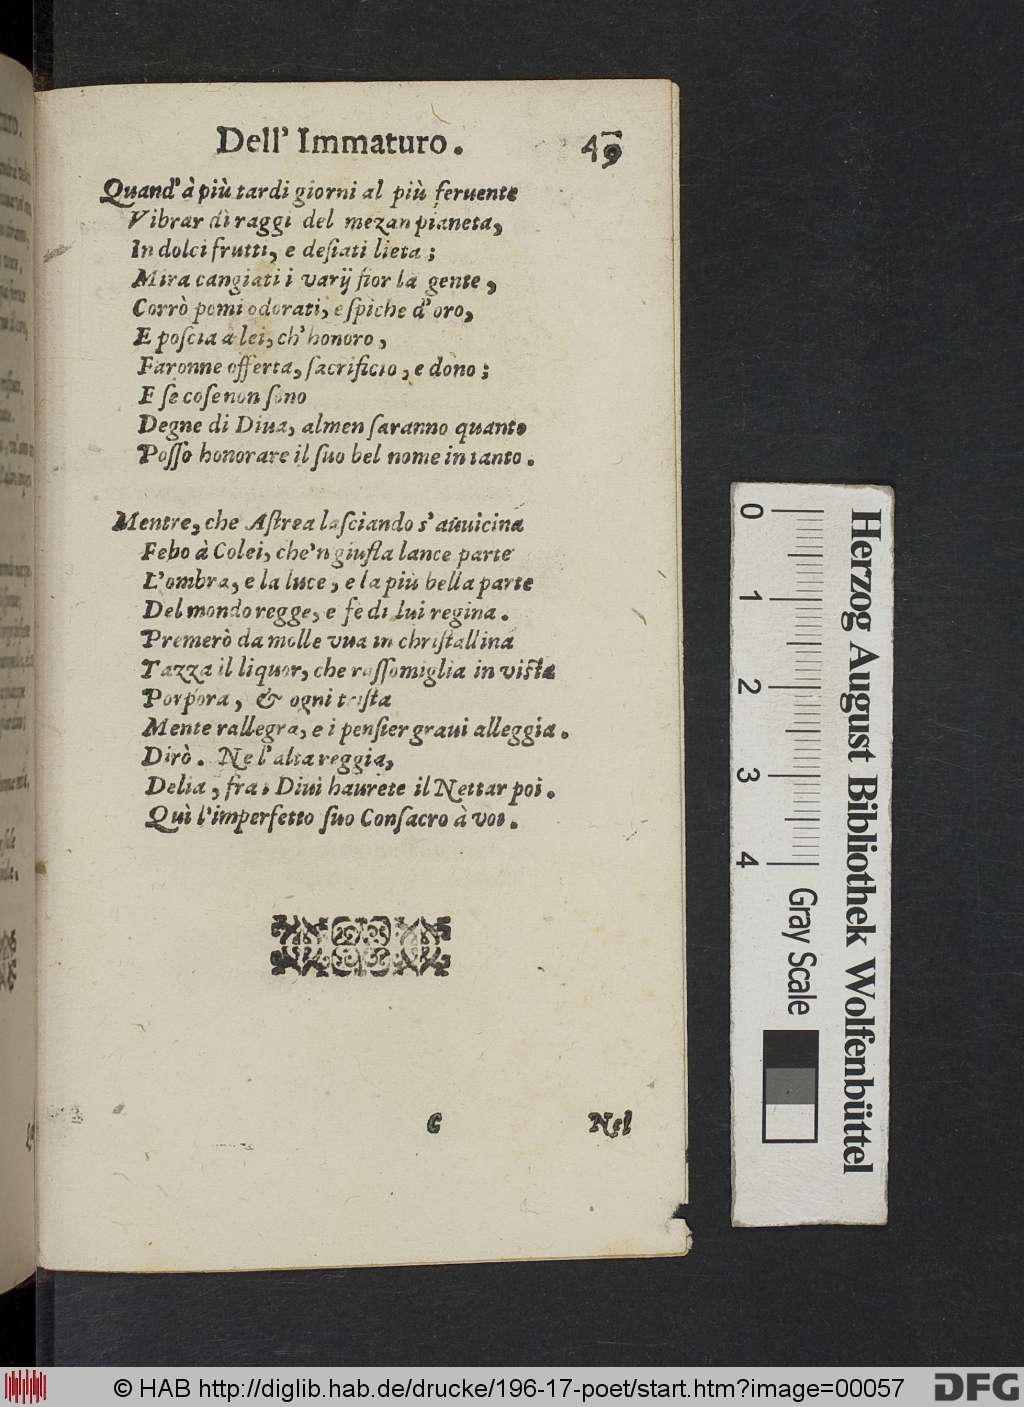 Dell' Immaturo. 49
Quand' à più tardi giorni al più feruente
Vibrar di raggi del mezan pianeta,
In dolci frutti, e desiati lieta;
Mira cangiati i varij fior la gente,
Corrò pomi odorati, e spiche d'oro,
E poscia a lei, ch' honoro,
Faronne offerta, sacrificio, e dono;
E se cose non sono
Degne di Diua, almen saranno quanto
Posso honorare il suo bel nome in tanto.
Mentre, che Astrea lasciando s' auuicina
Febo à Colei, che'n giusta lance parte
L'ombra, e la luce, e la più bella parte
Del mondo regge, e fè di lui regina.
Premerò da molle vua in christallina
Tazza il liquor, che rassomiglia in vista
Porpora, & ogni trista
Mente rallegra, e i pensier graui alleggia.
Dirò. Ne l'alta reggia,
Delia, fra i Diui haurete il Nettar poi.
Quì l'imperfetto suo Consacro à voi.
C Nel
0 1 2 3 4
Gray Scale
Herzog August Bibliothek Wolfenbüttel
© HAB http://diglib.hab.de/drucke/196-17-poet/start.htm?image=00057
DFG